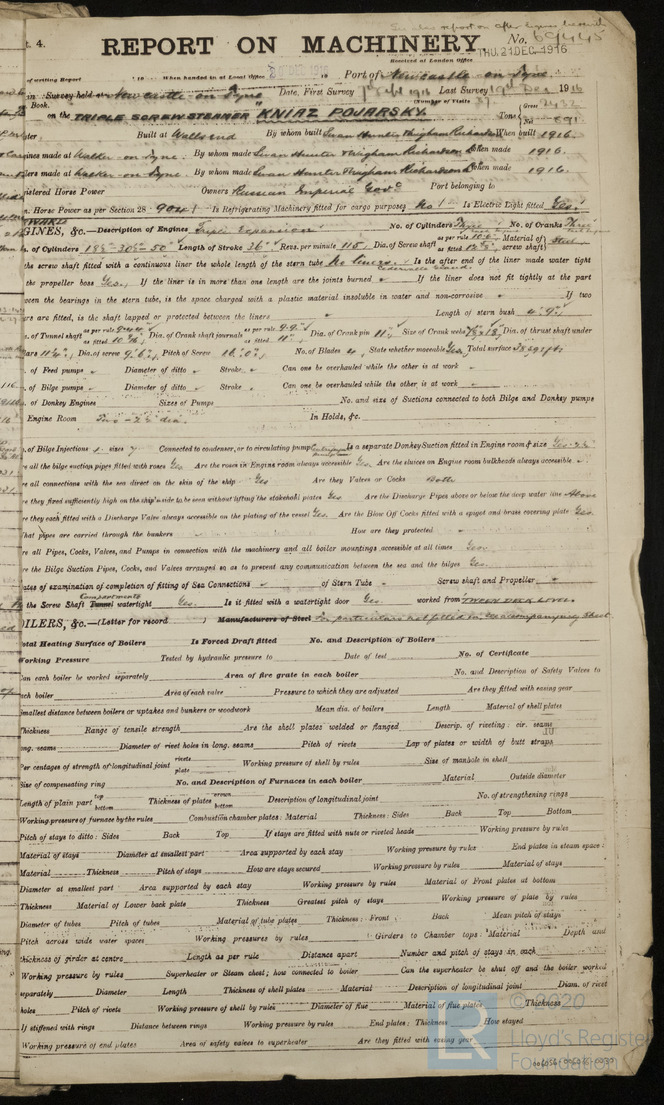 t. 4.
REPORT ON MACHINERY.
No. 69445
Received at London Office
THU. 21 DEC. 1916
of writing Report 19 When handed in at Local Office 19 Port of Newcastle-on-Tyne
in Survey held at Newcastle-on-Tyne Date, First Survey Last Survey 19th Dec 1916
Book. (Number of Visits 37
on the TRIPLE SCREW STEAMER "KNIAZ POJARSKY" Tons Gross 2432 Net 891
ter Built at Wallsend By whom built Swan Hunter & Wigham Richardson When built 1916.
ines made at Walker-on-Tyne. By whom made Swan Hunter & Wigham Richardson when made 1916.
ers made at Walker-on-Tyne. By whom made Swan Hunter & Wigham Richardson when made 1916.
istered Horse Power Owners Russian Imperial Govt Port belonging to
n. Horse Power as per Section 28 904 Is Refrigerating Machinery fitted for cargo purposes No Is Electric Light fitted Yes.
GINES, &c.—Description of Engines Triple Expansion No. of Cylinders Three No. of Cranks Three
. of Cylinders Length of Stroke 36" Revs. per minute 115 Dia. of Screw shaft as per rule as fitted Material of screw shaft Steel
the screw shaft fitted with a continuous liner the whole length of the stern tube No liners. Is the after end of the liner made water tight
the propeller boss Yes. If the liner is in more than one length are the joints burned If the liner does not fit tightly at the part
ween the bearings in the stern tube, is the space charged with a plastic material insoluble in water and non-corrosive If two
rs are fitted, is the shaft lapped or protected between the liners Length of stern bush 4'.9"
. of Tunnel shaft as per rule as fitted Dia. of Crank shaft journals as per rule 9.9" as fitted 11" Dia. of Crank pin 11" Size of Crank webs Dia. of thrust shaft under
lars Dia. of screw 9'.6" Pitch of Screw No. of Blades 4 State whether moveable Yes Total surface
. of Feed pumps Diameter of ditto Stroke Can one be overhauled while the other is at work
. of Bilge pumps Diameter of ditto Stroke Can one be overhauled while the other is at work
. of Donkey Engines Sizes of Pumps No. and size of Suctions connected to both Bilge and Donkey pumps
Engine Room In Holds, &c.
. of Bilge Injections sizes 7 Connected to condenser, or to circulating pump Is a separate Donkey Suction fitted in Engine room & size
e all the bilge suction pipes fitted with roses Yes Are the roses in Engine room always accessible Yes. Are the sluices on Engine room bulkheads always accessible
e all connections with the sea direct on the skin of the ship Yes Are they Valves or Cocks Both
e they fixed sufficiently high on the ship's side to be seen without lifting the stokehold plates Yes Are the Discharge Pipes above or below the deep water line Above
e they each fitted with a Discharge Valve always accessible on the plating of the vessel Yes. Are the Blow Off Cocks fitted with a spigot and brass covering plate Yes.
hat pipes are carried through the bunkers How are they protected
e all Pipes, Cocks, Valves, and Pumps in connection with the machinery and all boiler mountings accessible at all times Yes.
e the Bilge Suction Pipes, Cocks, and Valves arranged so as to prevent any communication between the sea and the bilges Yes.
ates of examination of completion of fitting of Sea Connections of Stern Tube Screw shaft and Propeller
the Screw Shaft Tunnel Compartments watertight Yes. Is it fitted with a watertight door Yes. worked from
OILERS, &c.—(Letter for record ) Manufacturers of Steel For particulars not filled in, see accompanying sheet
otal Heating Surface of Boilers Is Forced Draft fitted No. and Description of Boilers
Working Pressure Tested by hydraulic pressure to Date of test No. of Certificate
Can each boiler be worked separately Area of fire grate in each boiler No. and Description of Safety Valves to
ach boiler Area of each valve Pressure to which they are adjusted Are they fitted with easing gear
Smallest distance between boilers or uptakes and bunkers or woodwork Mean dia. of boilers Length Material of shell plates
Thickness Range of tensile strength Are the shell plates welded or flanged Descrip. of riveting: cir. seams
ong. seams Diameter of rivet holes in long. seams Pitch of rivets Lap of plates or width of butt straps
Per centages of strength of longitudinal joint rivets plate Working pressure of shell by rules Size of manhole in shell
Size of compensating ring No. and Description of Furnaces in each boiler Material Outside diameter
Length of plain part top bottom Thickness of plates crown bottom Description of longitudinal joint No. of strengthening rings
Working pressure of furnace by the rules Combustion chamber plates: Material Thickness: Sides Back Top Bottom
Pitch of stays to ditto: Sides Back Top If stays are fitted with nuts or riveted heads Working pressure by rules
Material of stays Diameter at smallest part Area supported by each stay Working pressure by rules End plates in steam space:
Material Thickness Pitch of stays How are stays secured Working pressure by rules Material of stays
Diameter at smallest part Area supported by each stay Working pressure by rules Material of Front plates at bottom
Thickness Material of Lower back plate Thickness Greatest pitch of stays Working pressure of plate by rules
Diameter of tubes Pitch of tubes Material of tube plates Thickness: Front Back Mean pitch of stays
Pitch across wide water spaces Working pressures by rules Girders to Chamber tops: Material Depth and
thickness of girder at centre Length as per rule Distance apart Number and pitch of stays in each
Working pressure by rules Superheater or Steam chest; how connected to boiler Can the superheater be shut off and the boiler worked
separately Diameter Length Thickness of shell plates Material Description of longitudinal joint Diam. of rivet
holes Pitch of rivets Working pressure of shell by rules Diameter of flue Material of flue plates Thickness
If stiffened with rings Distance between rings Working pressure by rules End plates: Thickness How stayed
Working pressure of end plates Area of safety valves to superheater Are they fitted with easing gear
© 2020
Lloyd's Register
Foundation